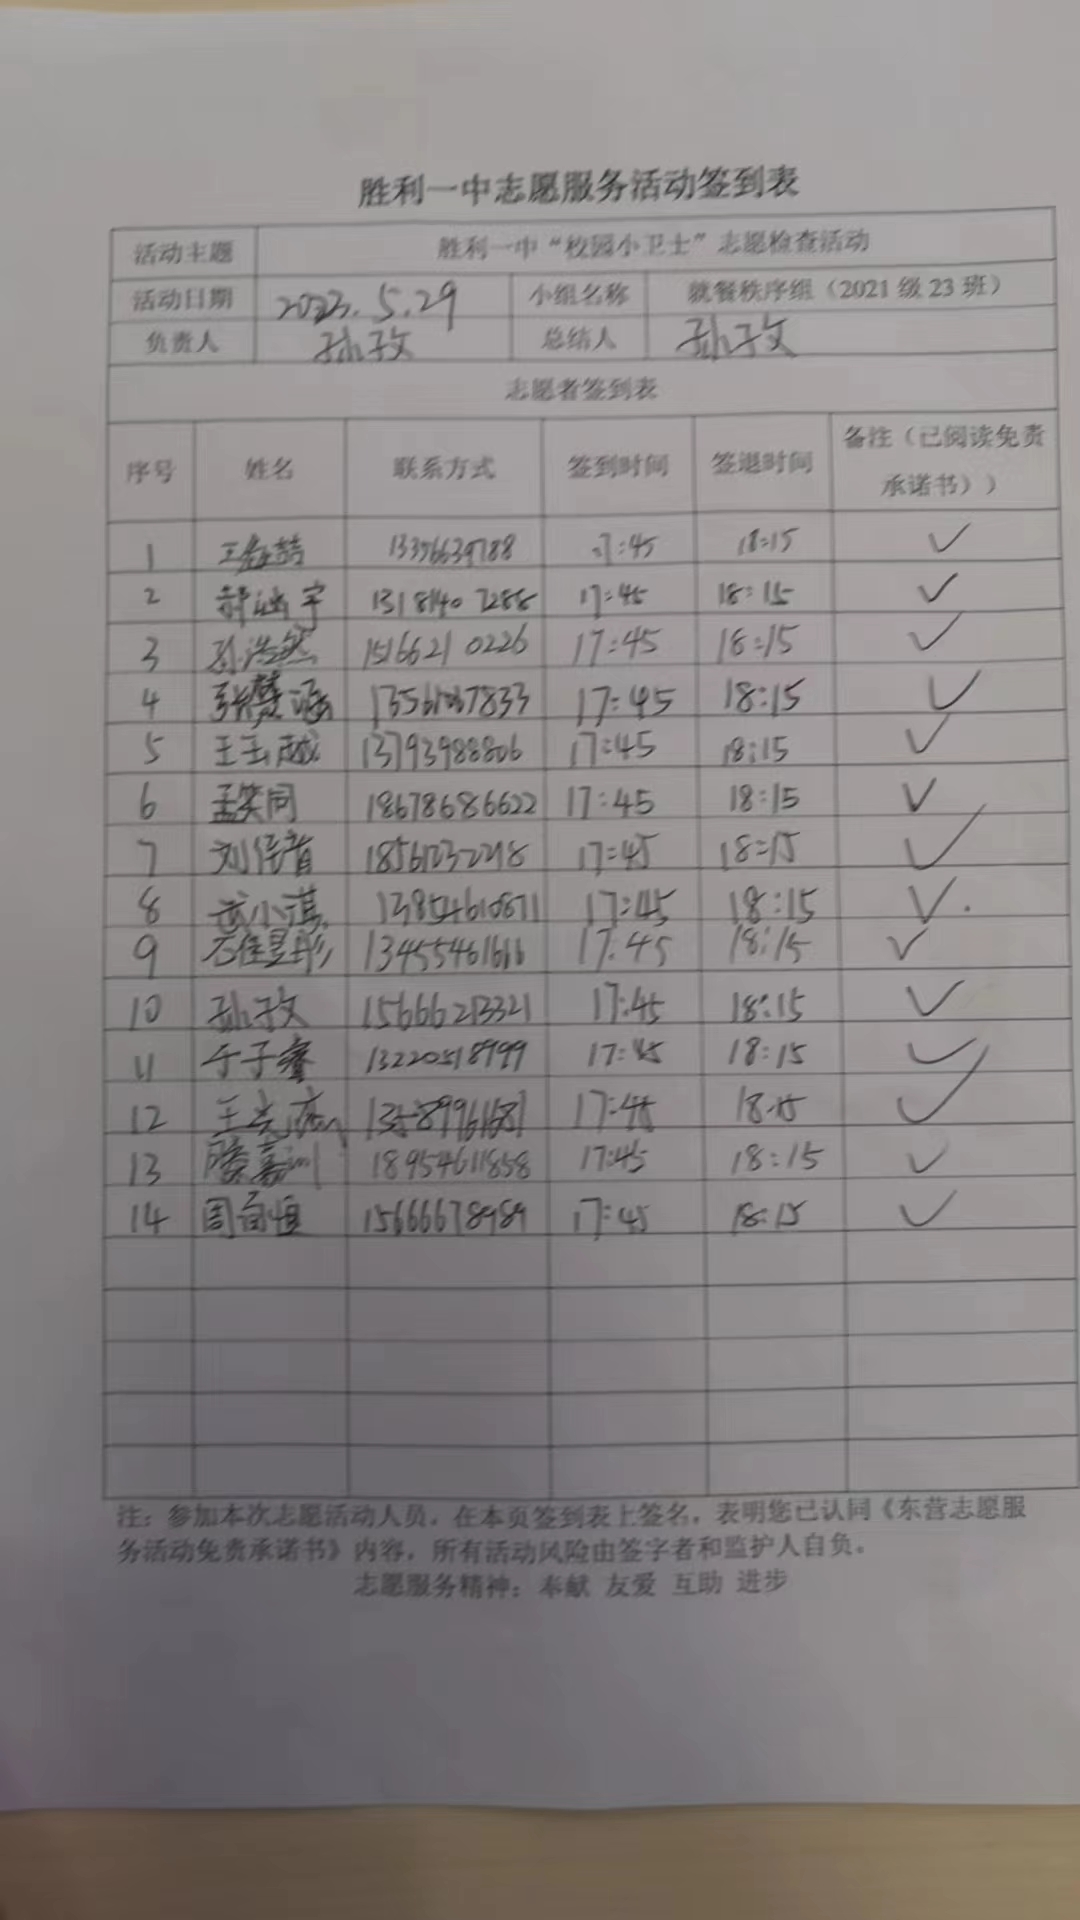 胜利一中志愿服务活动签到表
活动主题 胜利一中“校园小卫士”志愿检查活动
活动日期 2023.5.29 小组名称 就餐秩序组（2021级23班）
负责人 孙孜文 总结人 孙孜文
志愿者签到表
序号 姓名 联系方式 签到时间 签退时间 备注（已阅读免责承诺书））
1 17:45 18:15 ✓
2 13181407288 17:45 18:15 ✓
3 孙浩然 15166210226 17:45 18:15 ✓
4 17:45 18:15 ✓
5 王玉越 13793988806 17:45 18:15 ✓
6 孟笑同 18678686622 17:45 18:15 ✓
7 18561232218 17:45 18:15 ✓
8 武小淇 13854610871 17:45 18:15 ✓
9 17:45 18:15 ✓
10 孙孜文 15666213321 17:45 18:15 ✓
11 于子睿 13220518999 17:45 18:15 ✓
12 17:45 18:15 ✓
13 18954611858 17:45 18:15 ✓
14 15666678989 17:45 18:15 ✓
注：参加本次志愿活动人员，在本页签到表上签名，表明您已认同《东营志愿服
务活动免责承诺书》内容，所有活动风险由签字者和监护人自负。
志愿服务精神：奉献 友爱 互助 进步